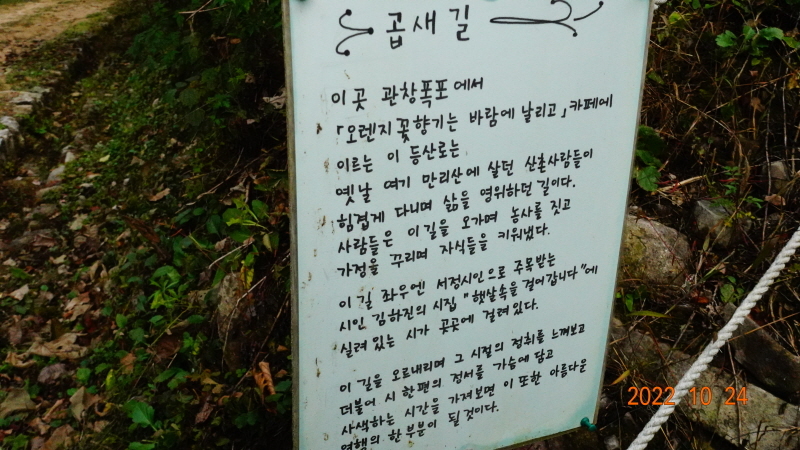 곱새길
이 곳 관창폭포에서
「오렌지 꽃향기는 바람에 날리고」카페에
이르는 이 등산로는
옛날 여기 만리산에 살던 산촌사람들이
힘겹게 다니며 삶을 영위하던 길이다.
사람들은 이 길을 오가며 농사를 짓고
가정을 꾸리며 자식들을 키워냈다.
이 길 좌우엔 서정시인으로 주목받는
시인 김하진의 시집 "햇살속을 걸어갑니다"에
실려 있는 시가 곳곳에 걸려있다.
이 길을 오르내리며 그 시절의 정취를 느껴보고
더불어 시 한편의 정서를 가슴에 담고
사색하는 시간을 가져보면 이 또한 아름다운
여행의 한부분이 될 것이다.
2022 10 24